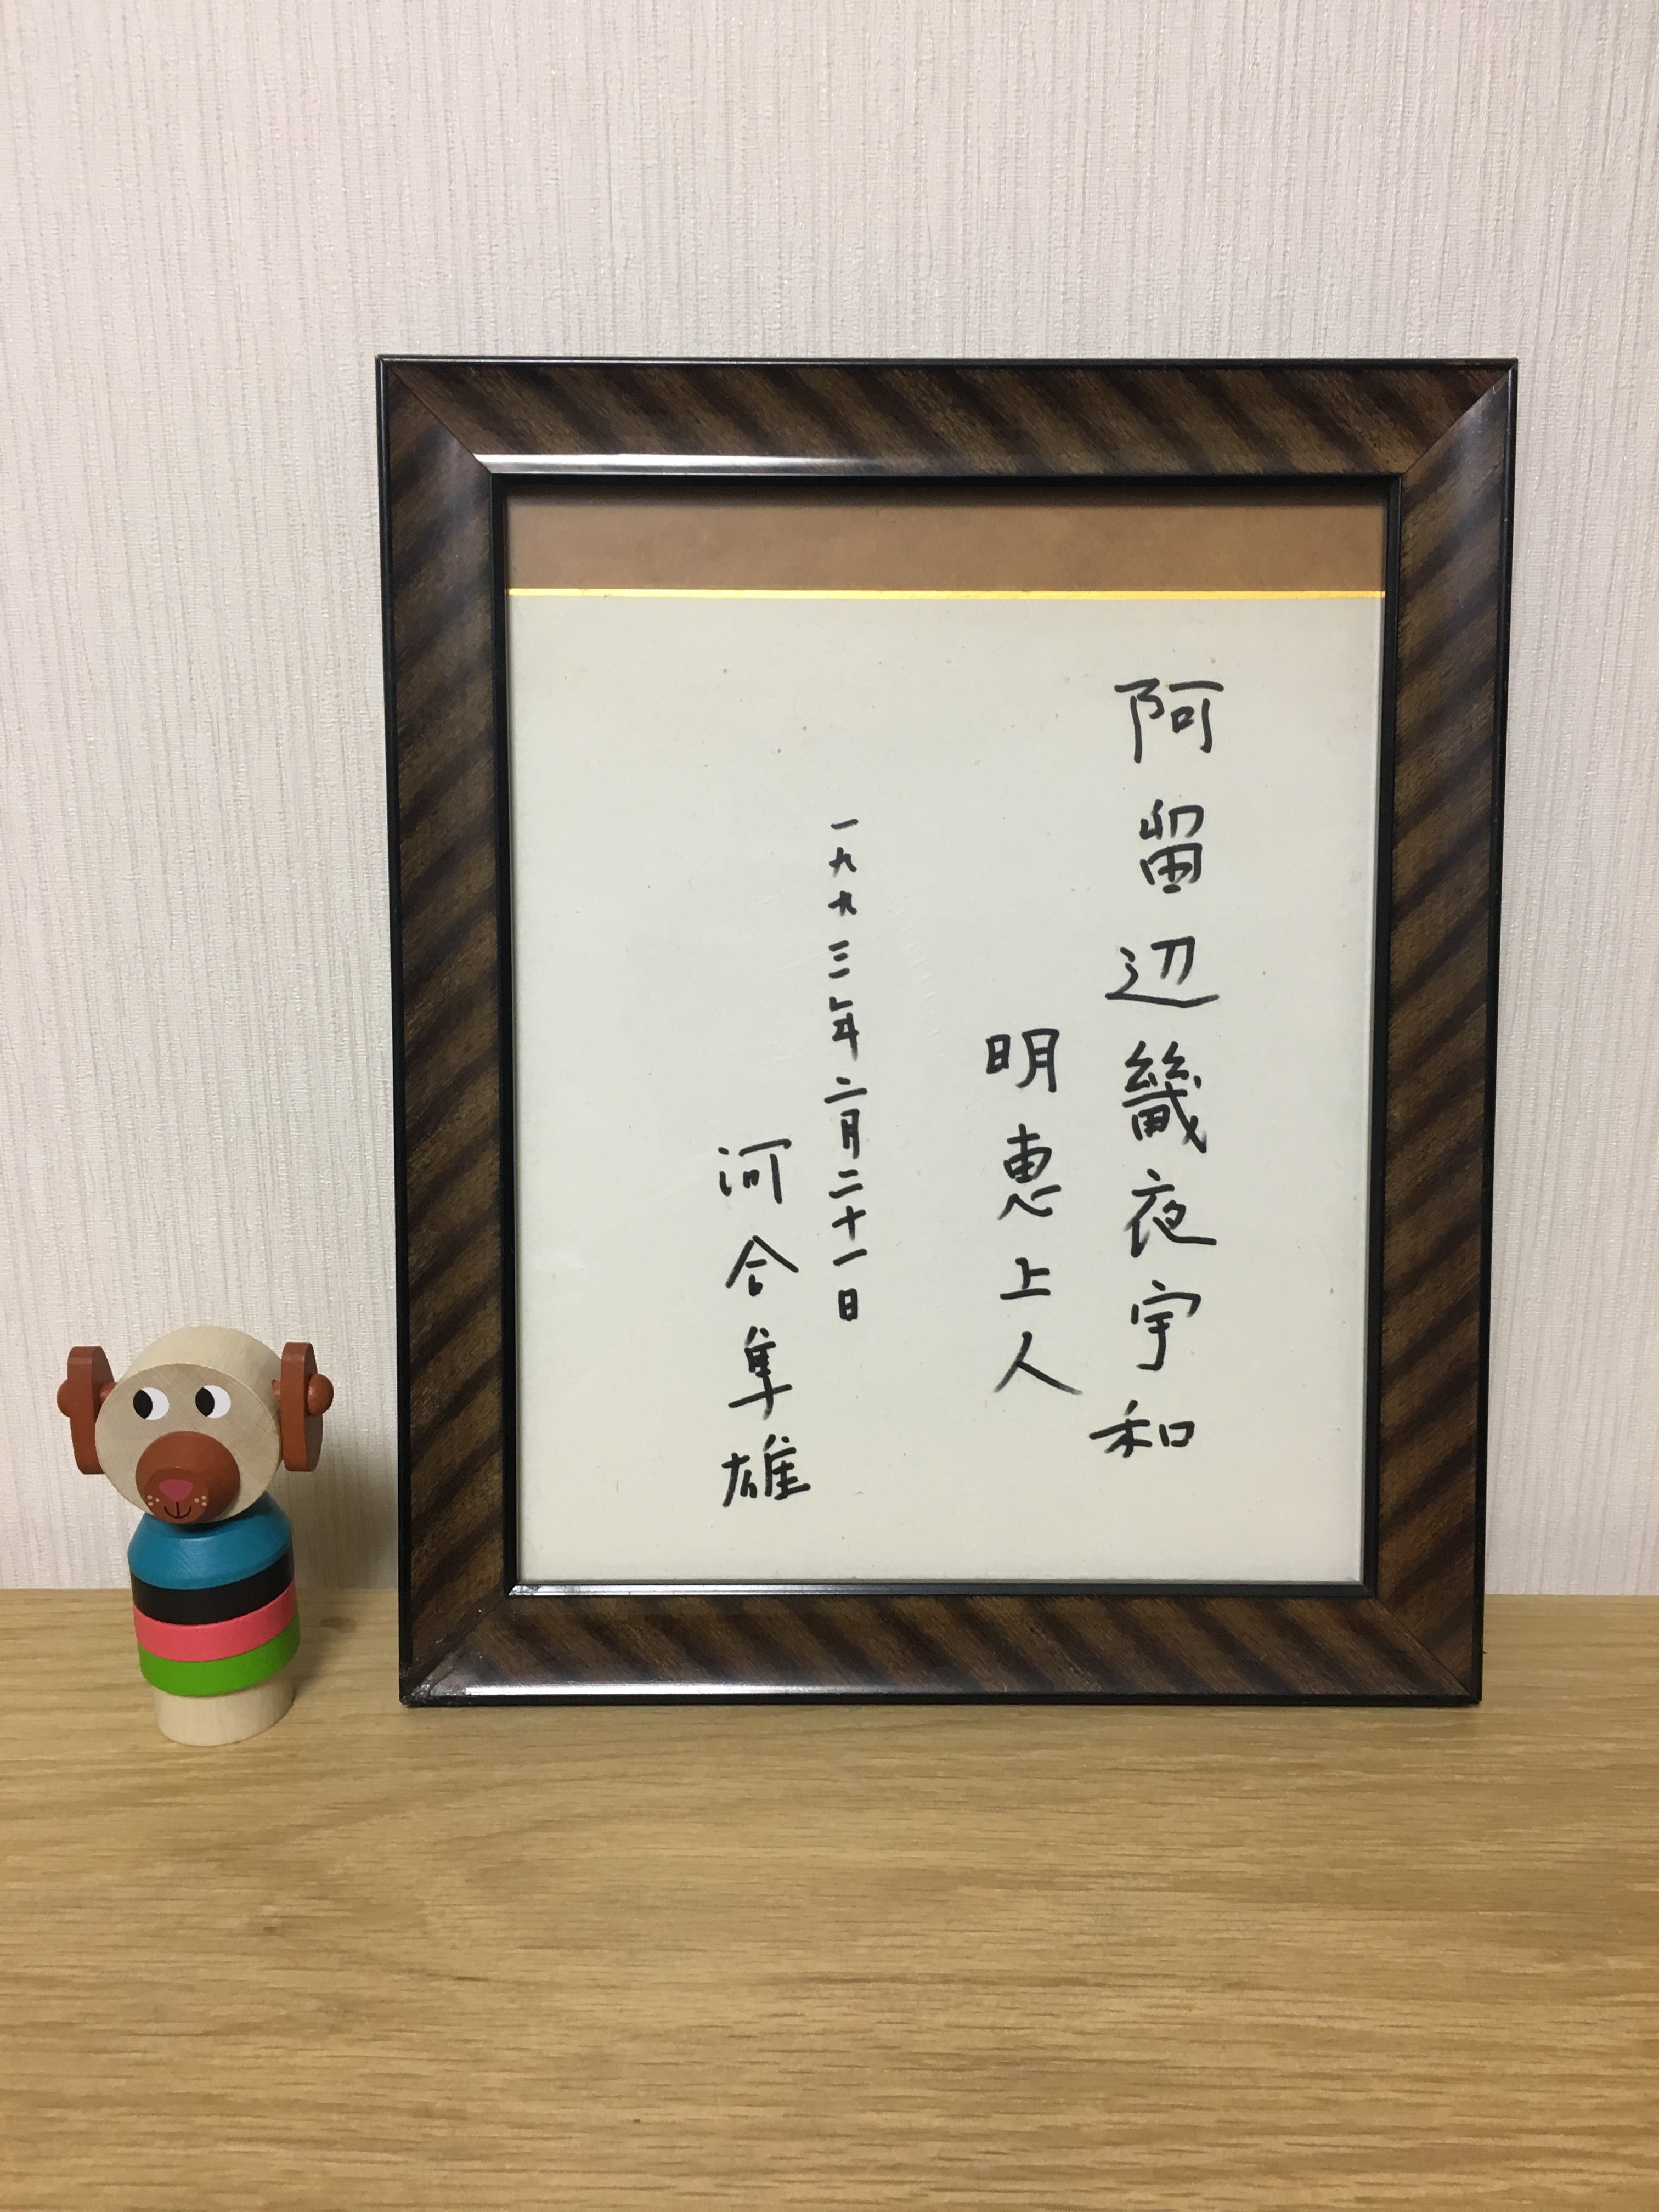 阿留辺畿夜宇和
明恵上人
一九九三年二月二十一日
河合隼雄